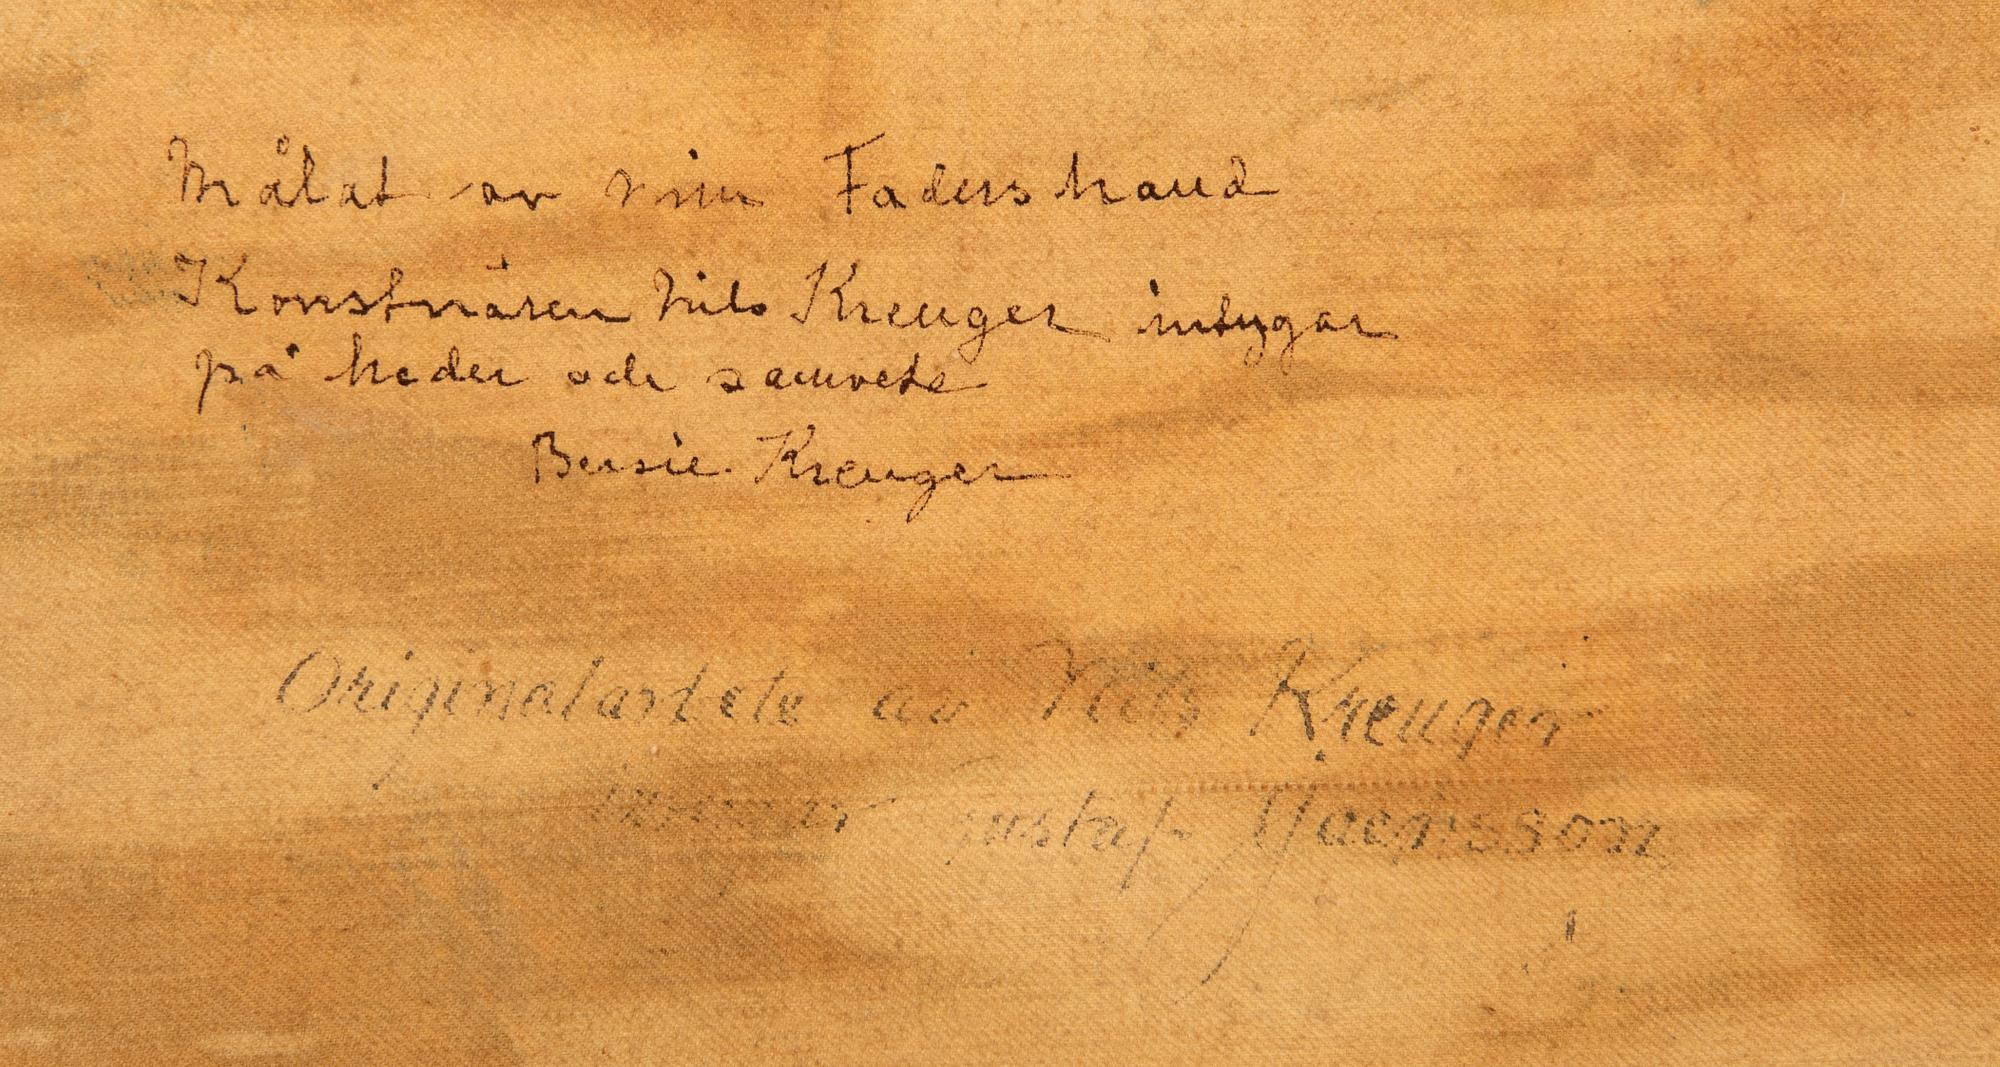 Målat av min Faders hand
Konstnären Nils Kreuger intygar
på heder och samvete
Bersie Kreuger
Originalarbete av Nils Kreuger
gustaf Jaensson